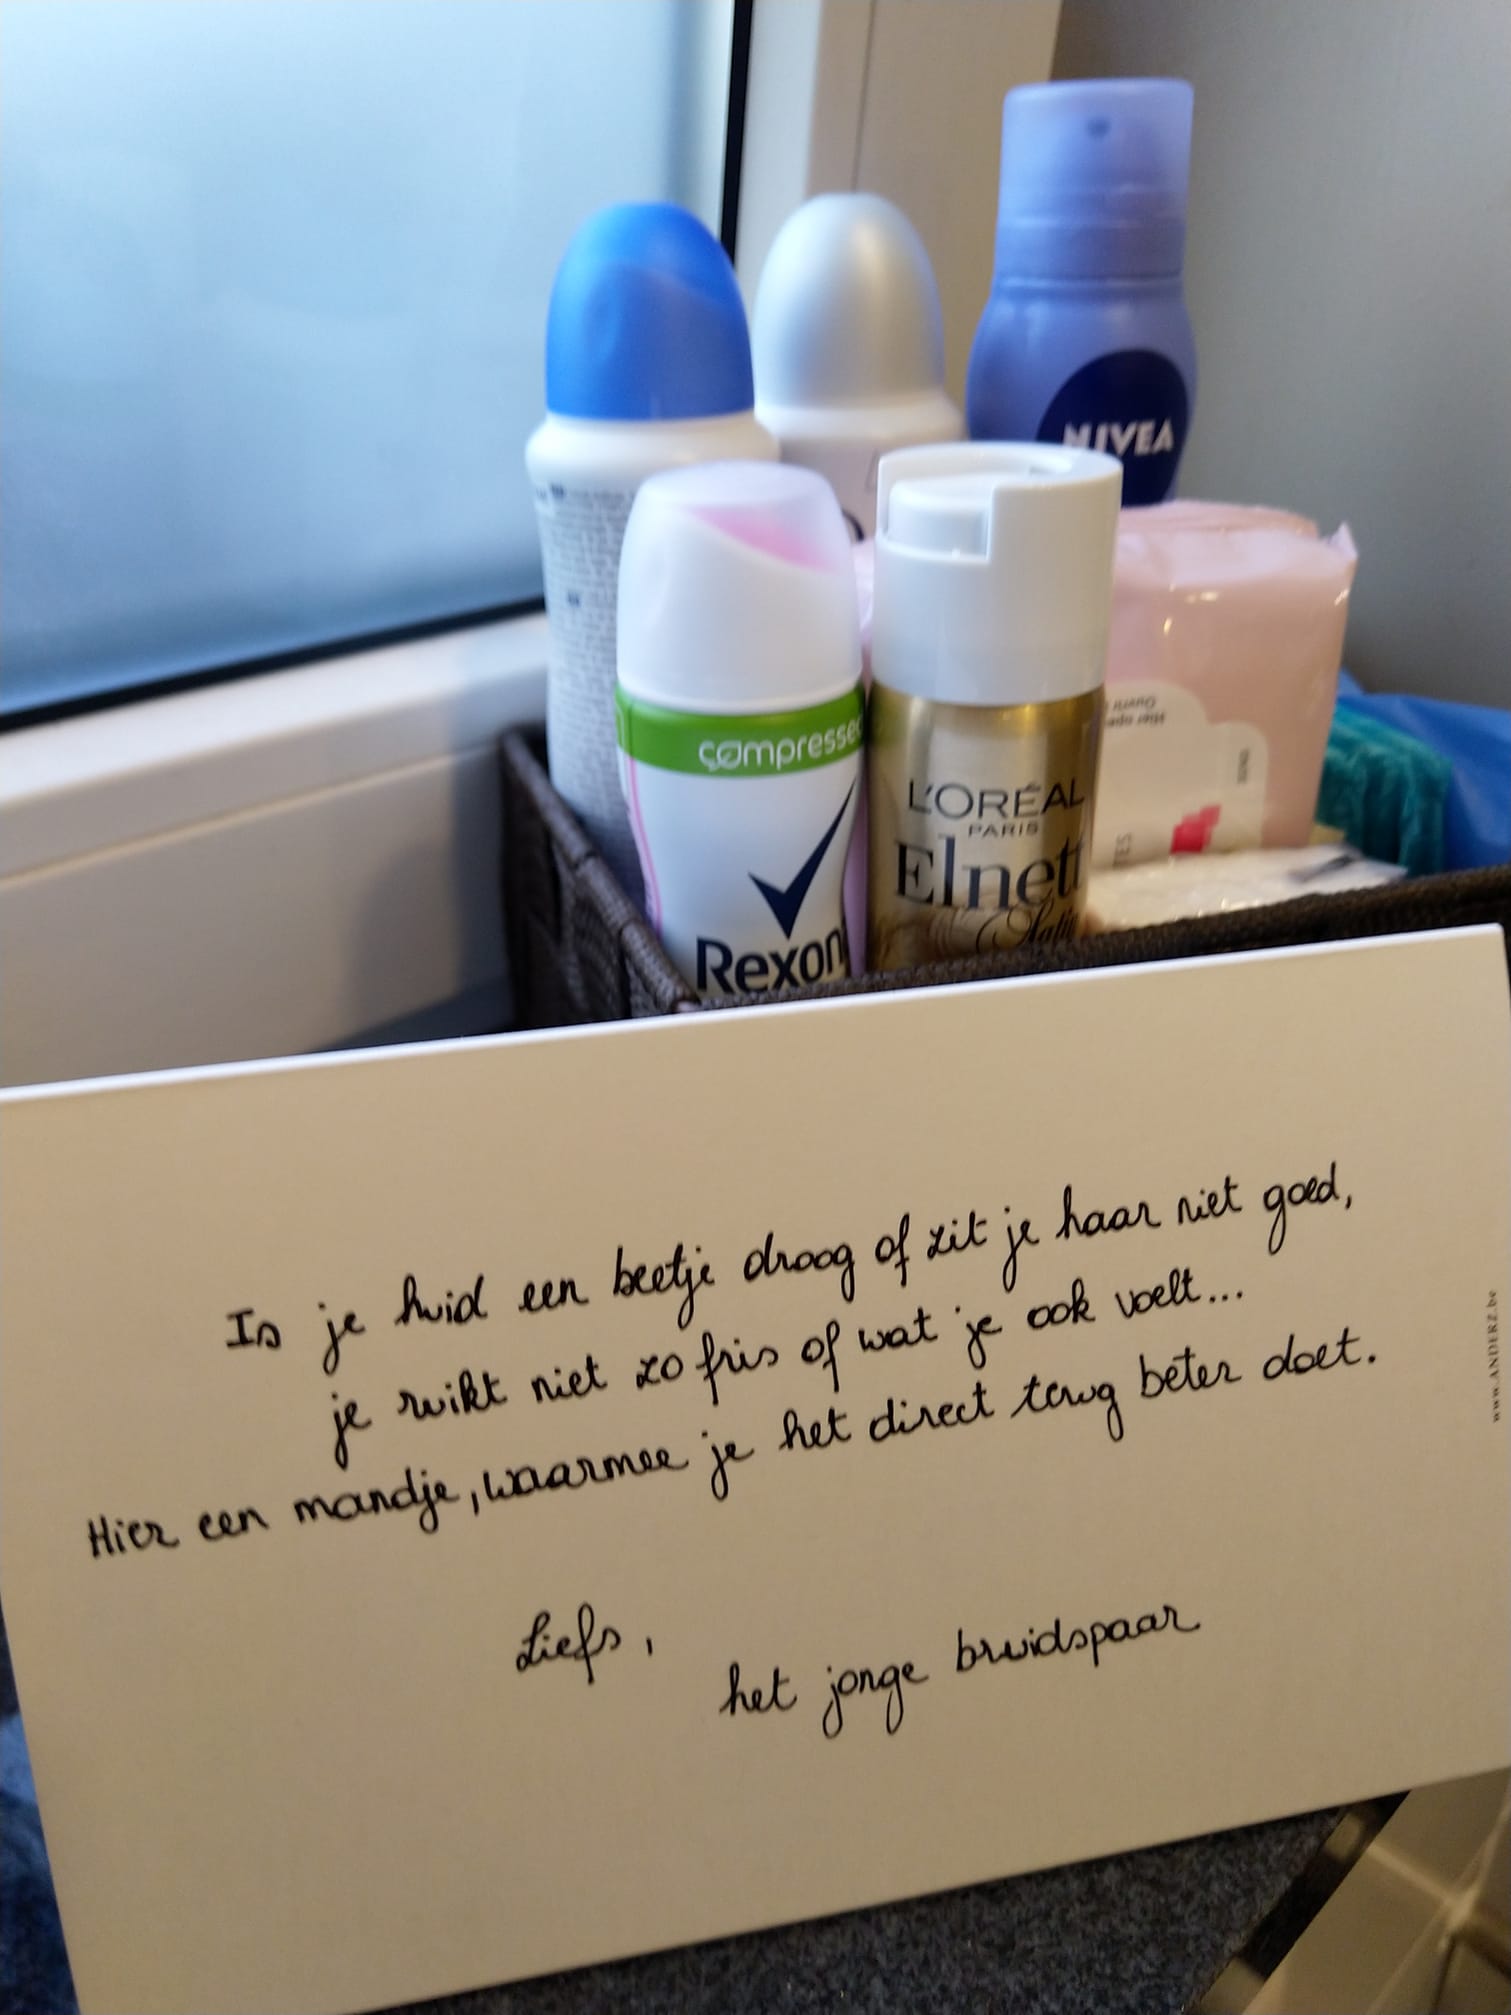 NIVEA
compressed
Rexon
L'ORÉAL
PARIS
Elnett
Satin
Is je huid een beetje droog of zit je haar niet goed,
je ruikt niet zo fris of wat je ook voelt...
Hier een mandje, waarmee je het direct terug beter doet.
Liefs,
het jonge bruidspaar
www.ANDERZ.be